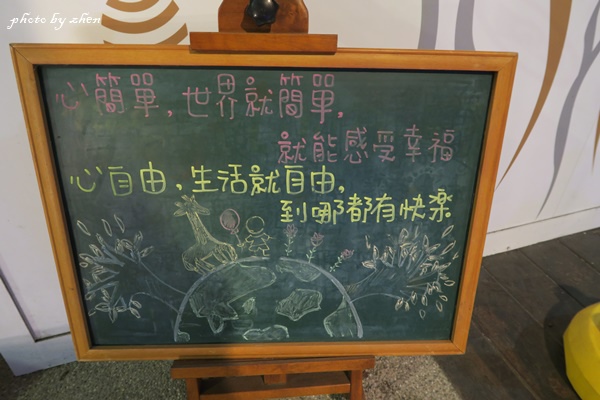 photo by zhen
心簡單,世界就簡單,
就能感受幸福
心自由,生活就自由,
到哪都有快樂